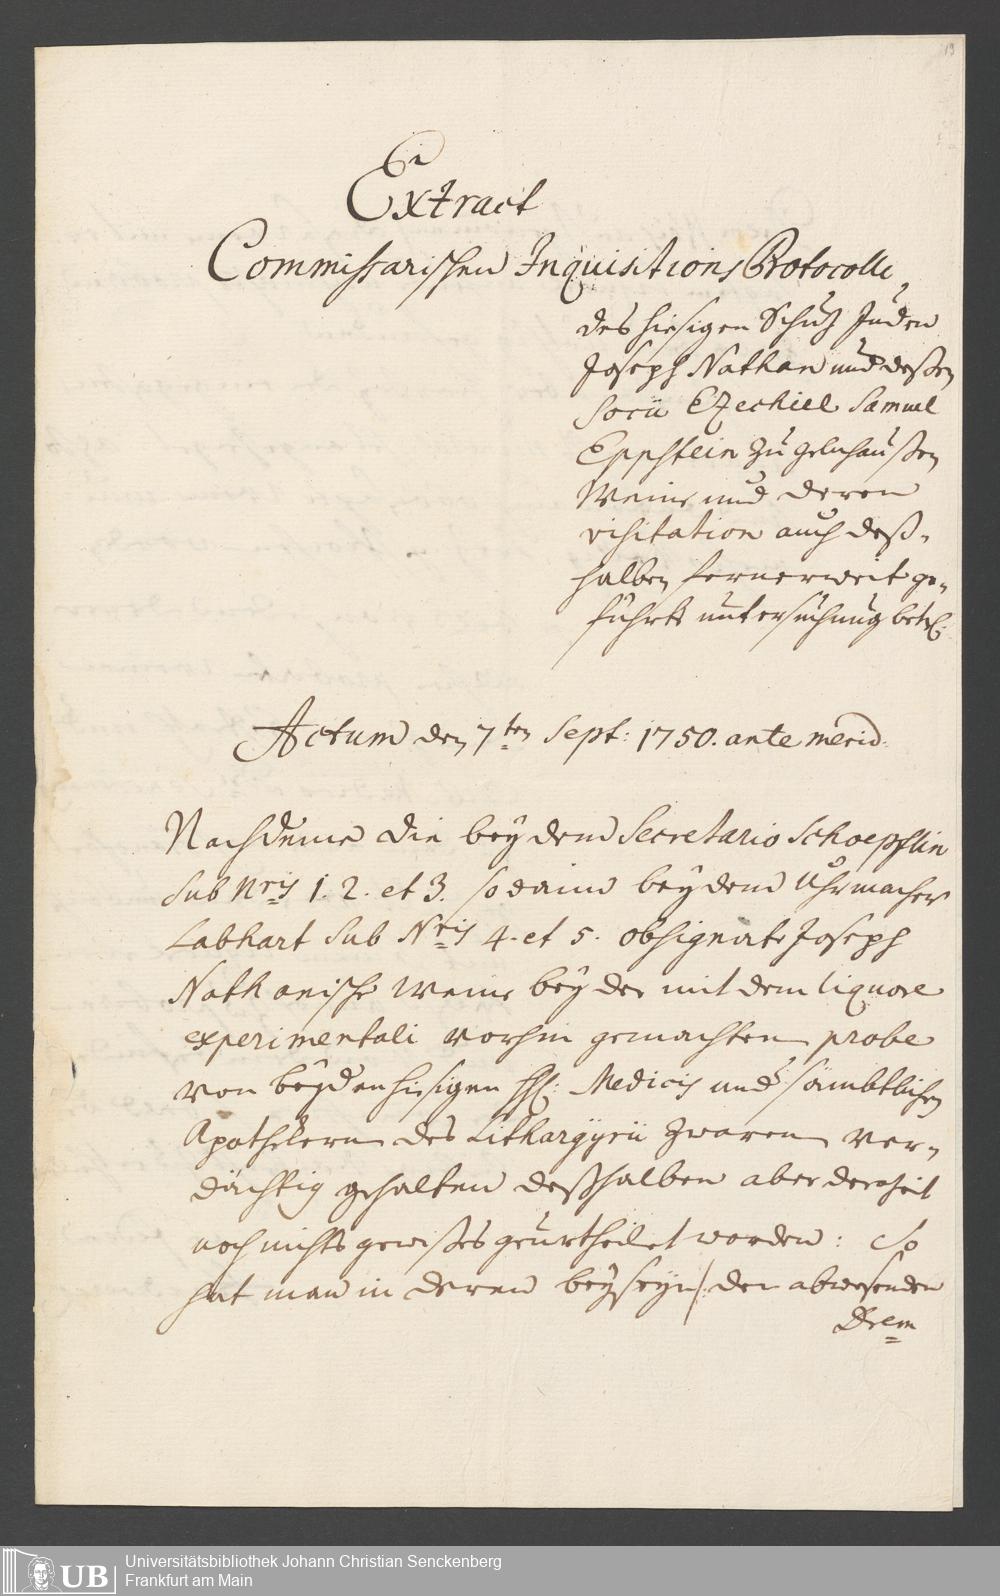 19
Extract
Commissarischen Inquisitions Protocolli,
des hiesigen Schutz Juden
Joseph Nathan und deßen
Socii Ezechiel Samuel
Eppstein zu gelnhaußen
Weine und deren
visitation auch deß-
halben fernerweit ge-
führte untersuchung betr:
Actum den 7ten Sept: 1750. ante merid.
Nachdeme die bey dem Secretario Schoepflin
sub Nris 1. 2. et 3. sodann bey dem Uhrmacher
Labhart sub Nris 4. et 5. obsignirte Joseph
Nathanische Weine bey der mit dem liquore
experimentali vorhin gemachten probe
von beyden hiesigen HH: Medicis und sämbtlichen
Apothekern des Lithargyrii zwaren ver-
dächtig gehalten deßhalben aber derzeit
noch nichts gewißes geurtheilet worden: So
hat man in deren beyseyn /: den abwesenden
Drem
Universitätsbibliothek Johann Christian Senckenberg
Frankfurt am Main
UB